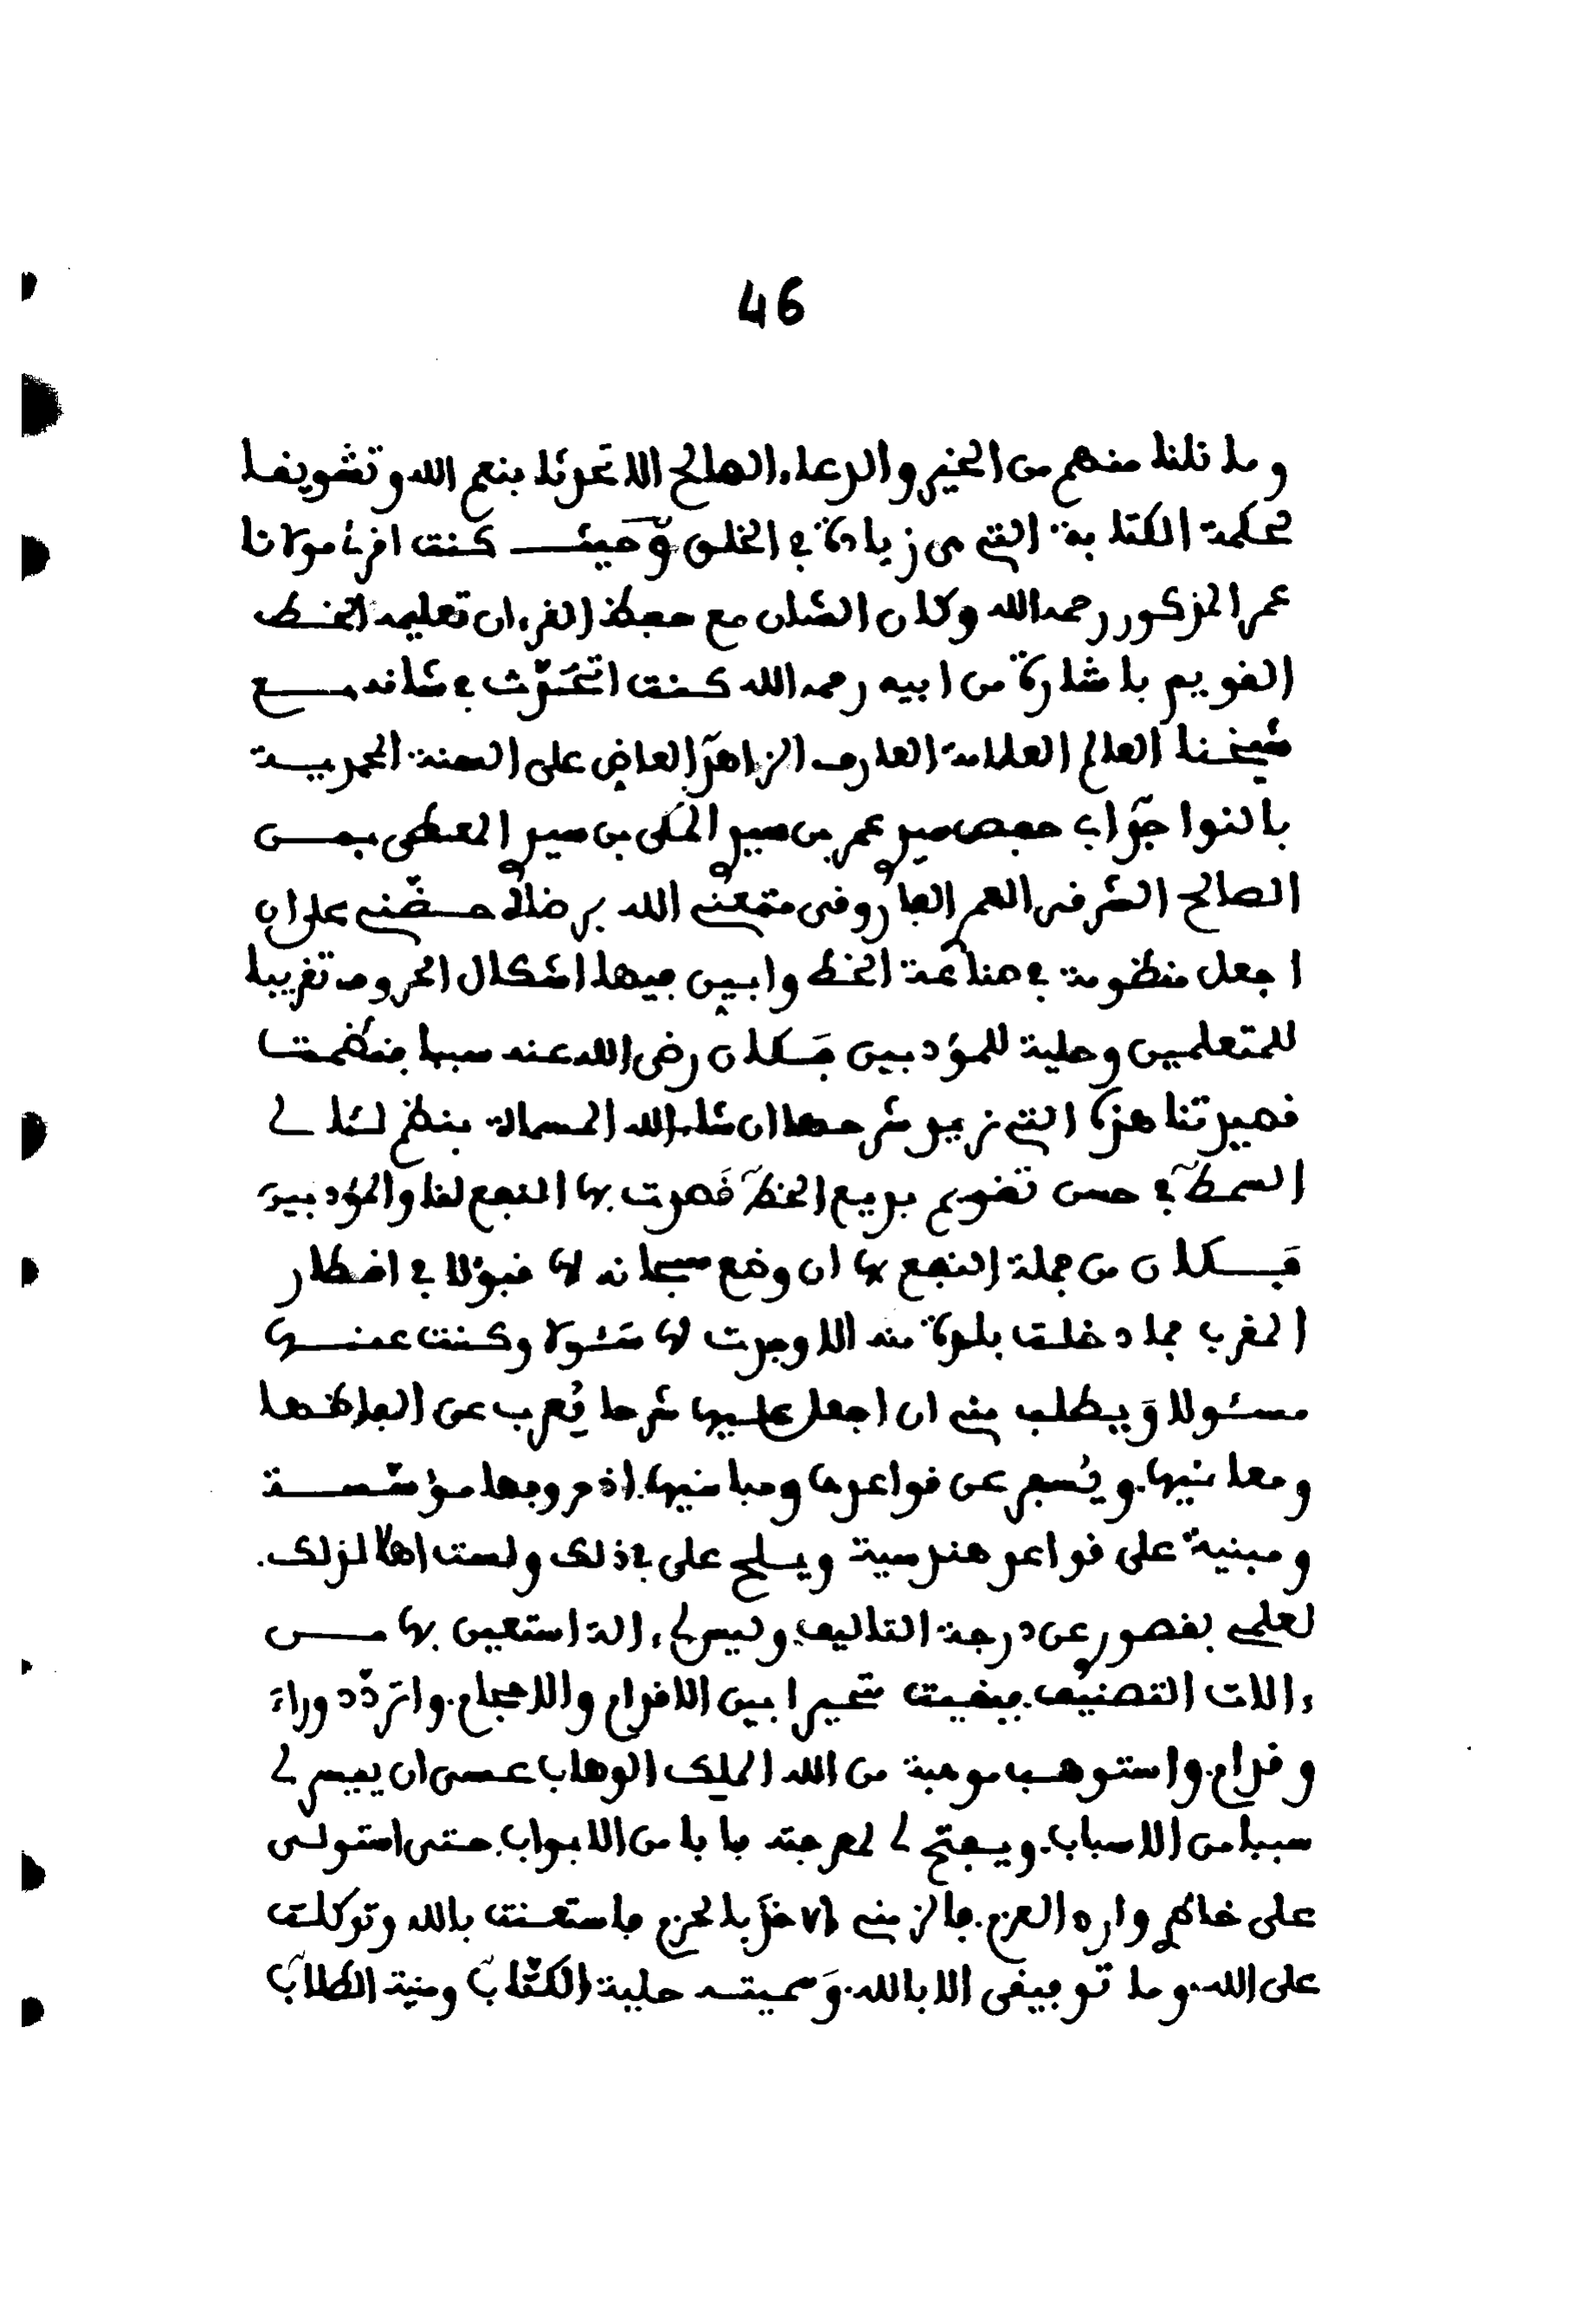 46
وما نلنا منهم من الخير والدعاء الصالح الا تحدثا بنعم الله وتشويقا
لحكمة الكتابة التي من زيادة في الخلق وحيث كنت اقرئ مولانا
عمر المذكور رحمه الله وكان الشان مع حفظ القرءان تعليمه الخط
القويم باشارة من ابيه رحمه الله كنت اتحدث في شانه مع
شيخنا العالم العلامة العارف الزاهد العاض على السنة المحمدية
بالنواجد اب حفص سيدي عمر بن سيدي المكي بن سيدي المعطى بن
الصالح الشرفي العمري الفاروقي متعني الله برضاه حضني على ان
اجعل منظومة في صناعة الخط وابين فيها اشكال الحروف تقريبا
للمتعلمين وحلية للمؤدبين فكان رضي الله عنه سببها فنظمت
قصيدتنا هذه التي نريد شرحها ان شاء الله المسماة بنظم لئالي
السمط في حسن تقويم بديع الخط قصدت بها النفع لنا والمؤدبين
فكان من جملة النفع بها ان وضع سبحانه لها قبولا في اقطار
المغرب فما دخلت بلدة منه الا وجدت لها سئولا وكنت عنها
مسئولا ويطلب مني ان اجعل عليها شرحا يعرب عن الفاظها
ومعانيها. ويسفر عن قواعدها ومبانيها. اذ حروفها مؤسسة
ومبنية على قواعد هندسية ويلح علي في ذلك ولست اهلا لذلك.
لعلمي بقصوري عن درجة التاليف. وليس لي ءالة استعين بها من
ءالات التصنيف. فبقيت متحيرا بين الاقدام والاحجام. واتردد وراء
وقدام. واستوهب موهبة من الله الملك الوهاب عسى ان ييسر لي
سببا من الاسباب. ويفتح لي لمعرفته بابا من الابواب. حتى استولى
على خاطري وارد العزم. فالزمني الاخذ بالحزم فاستعنت بالله وتوكلت
على الله. وما توفيقي الا بالله. وسميته حلية الكتاب ومنية الطلاب